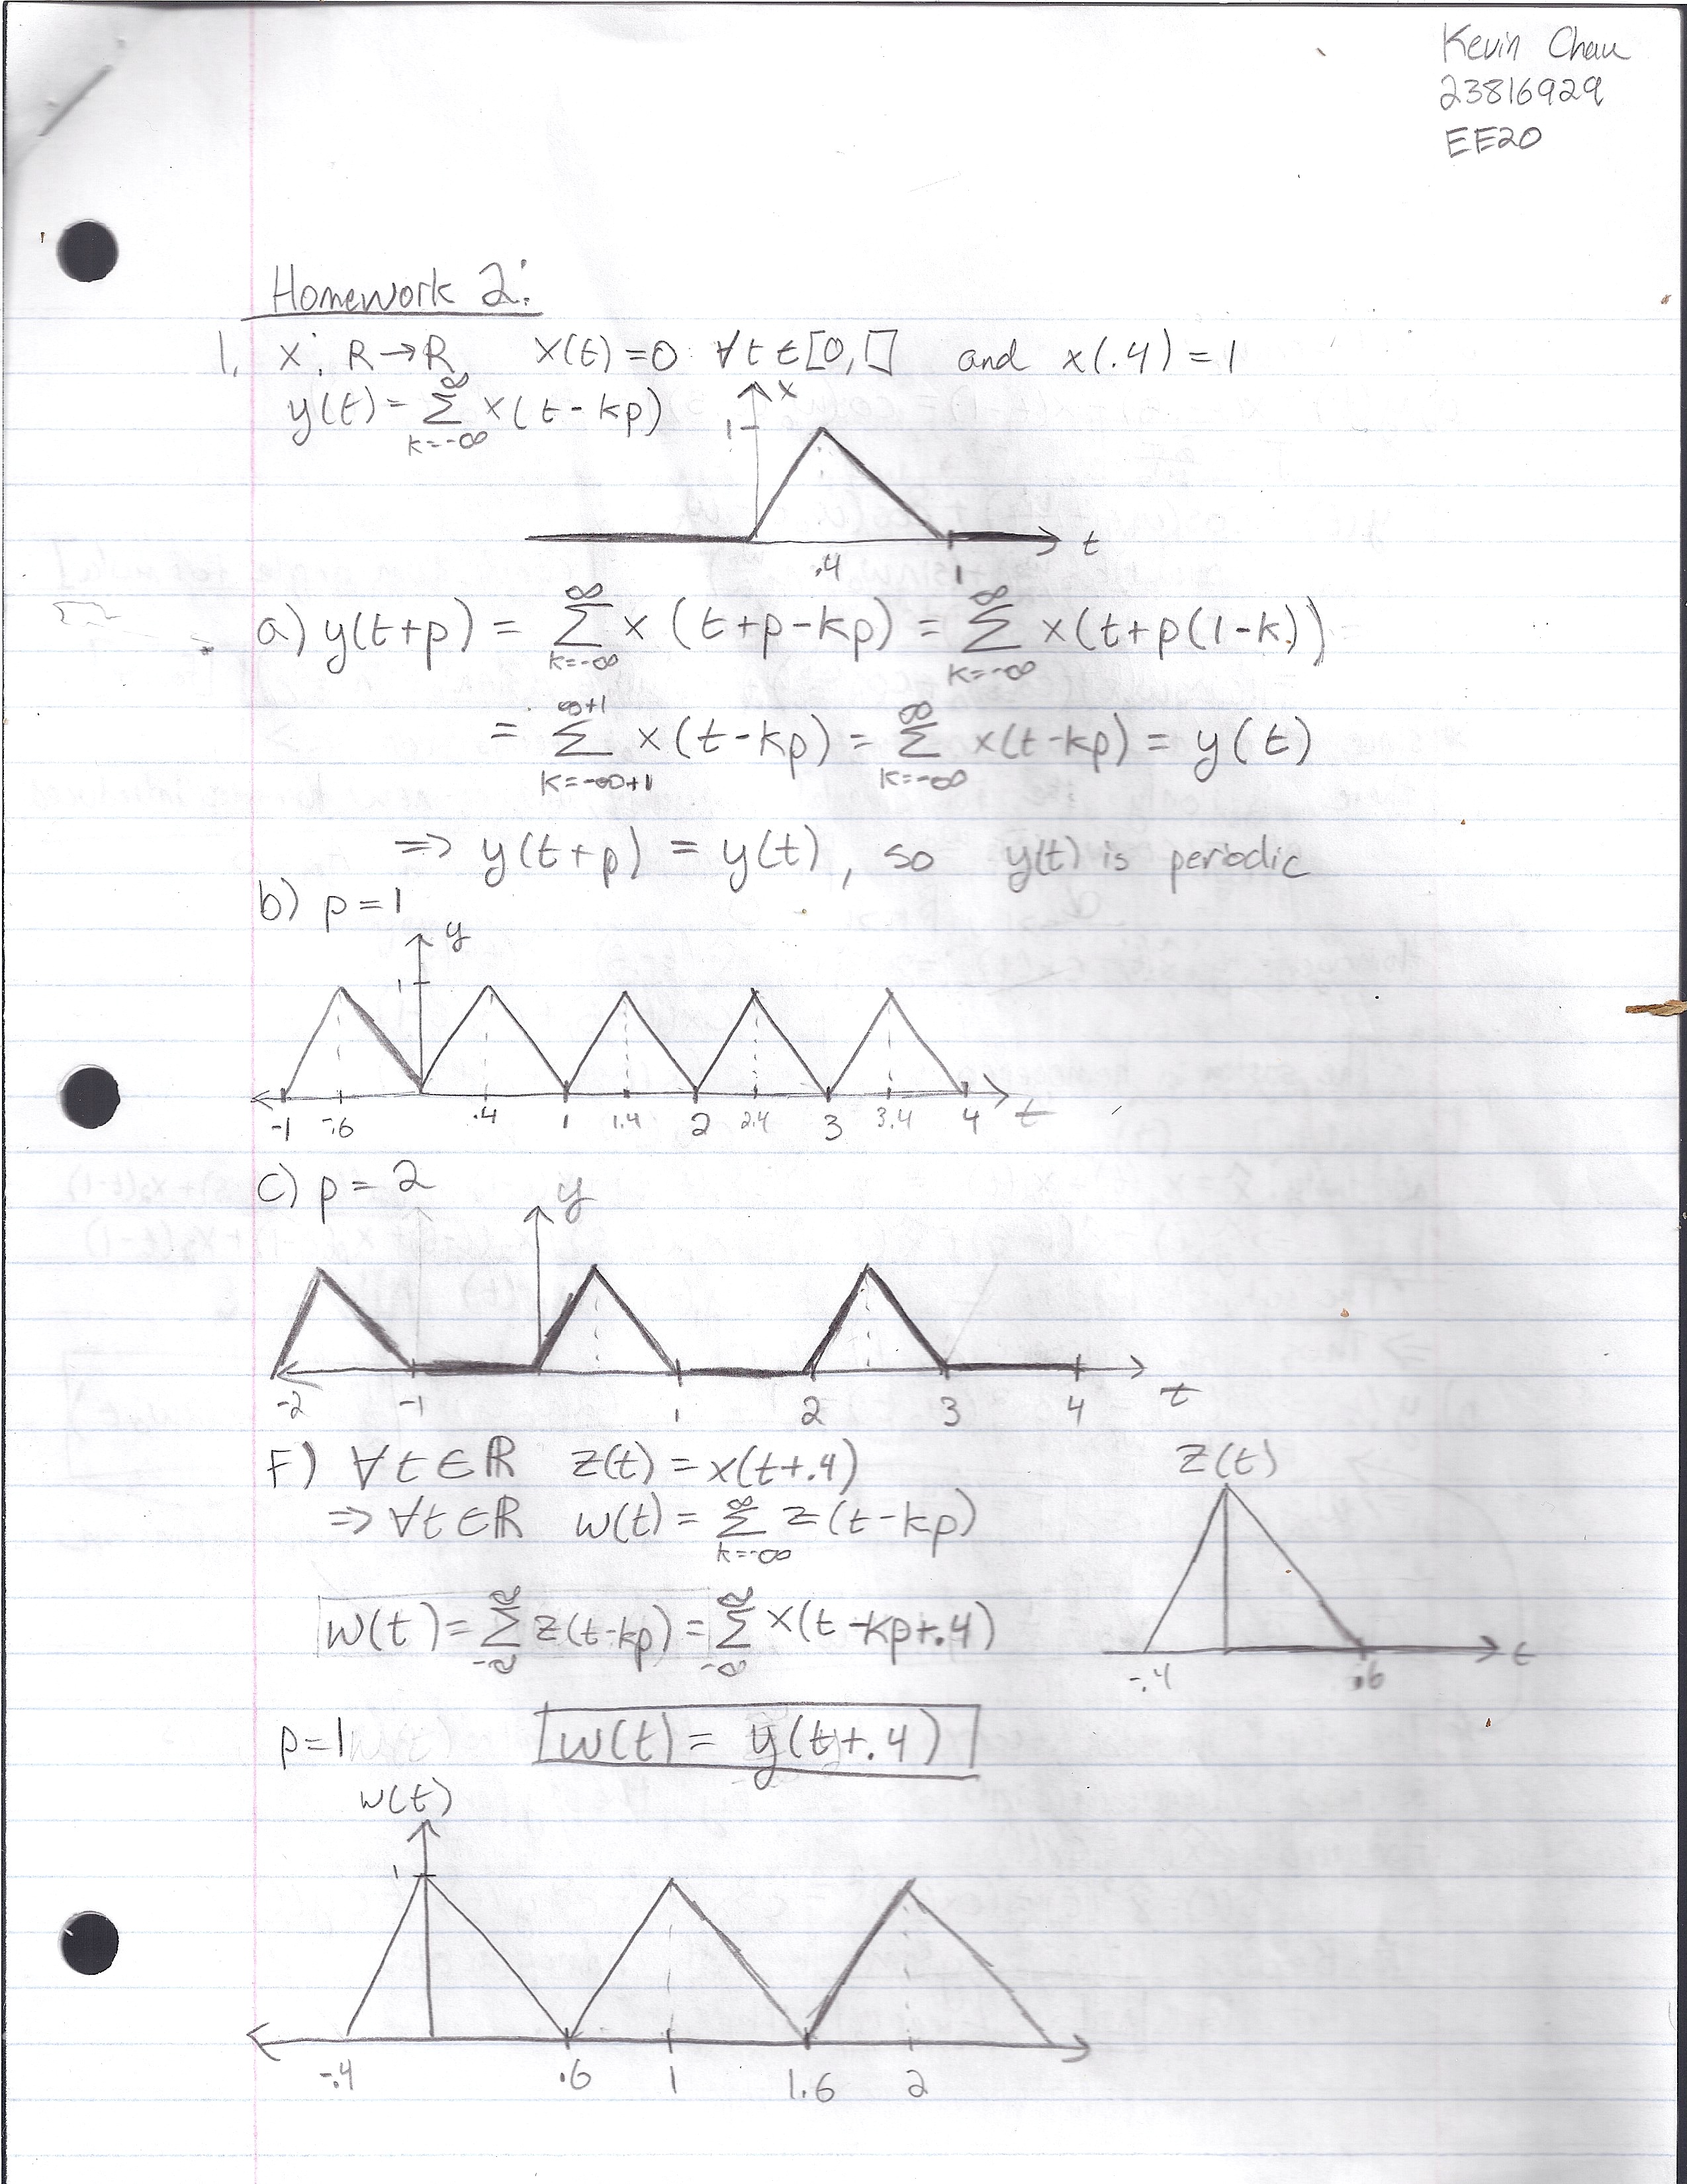 Kevin Chau
23816929
EE20
Homework 2:
1. x: R→R x(t)=0 ∀t∈[0,1] and x(.4)=1
y(t)=∑_{k=-∞}^{∞} x(t-kp)
x
1
t
.4 1
a) y(t+p) = ∑_{k=-∞}^{∞} x(t+p-kp) = ∑_{k=-∞}^{∞} x(t+p(1-k))
= ∑_{k=-∞+1}^{∞+1} x(t-kp) = ∑_{k=-∞}^{∞} x(t-kp) = y(t)
⇒ y(t+p) = y(t), so y(t) is periodic
b) p=1
y
1
-1 -.6 .4 1 1.4 2 2.4 3 3.4 4 t
c) p=2
y
-2 -1 1 2 3 4 t
F) ∀t∈ℝ z(t)=x(t+.4)
⇒ ∀t∈ℝ w(t)=∑_{k=-∞}^{∞} z(t-kp)
w(t)=∑_{-∞}^{∞} z(t-kp)=∑_{-∞}^{∞} x(t-kp+.4)
z(t)
t
-.4 .6
p=1 w(t)= y(t+.4)
w(t)
1
-.4 .6 1 1.6 2